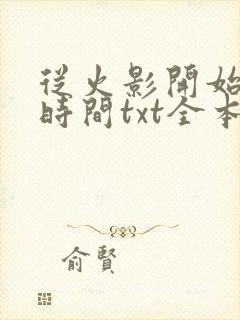 從火影開始
時間txt全本
俞賢